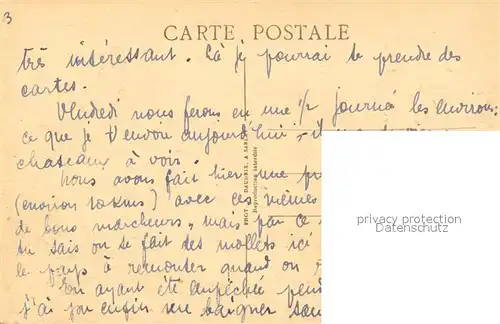 3
CARTE POSTALE
très intéressant. Là je pourrai te prendre des
cartes.
Vendredi nous ferons en une 1/2 journée les environs;
ce que je t'envoie aujourd'hui
chateaux à voir.
Nous avons fait hier une
(environ 10 kms) avec ces mêmes
de bons marcheurs, mais par ce
tu sais on se fait des mollets ici
le pays à remonter quand on
En ayant été empêchée
j'ai pu enfin me baigner
PHOT DAUGNIX, A SARL
Reproduction interdite
privacy protection
Datenschutz